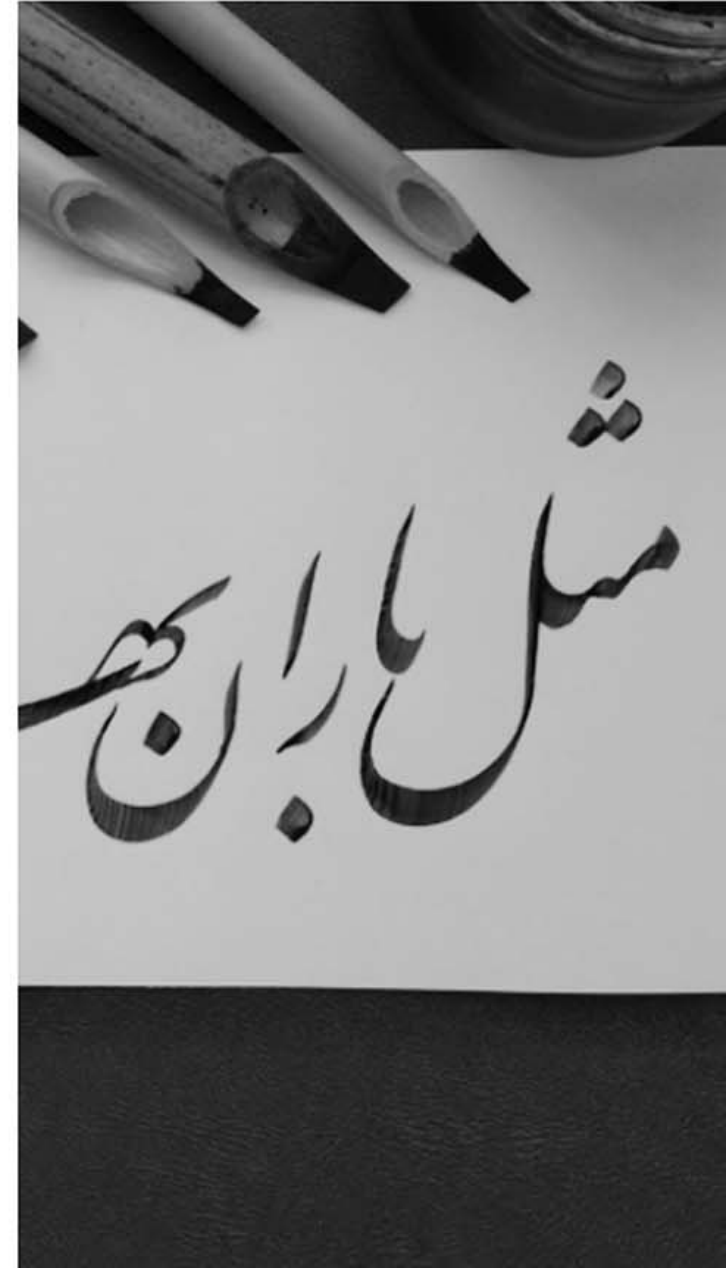 مثل باران